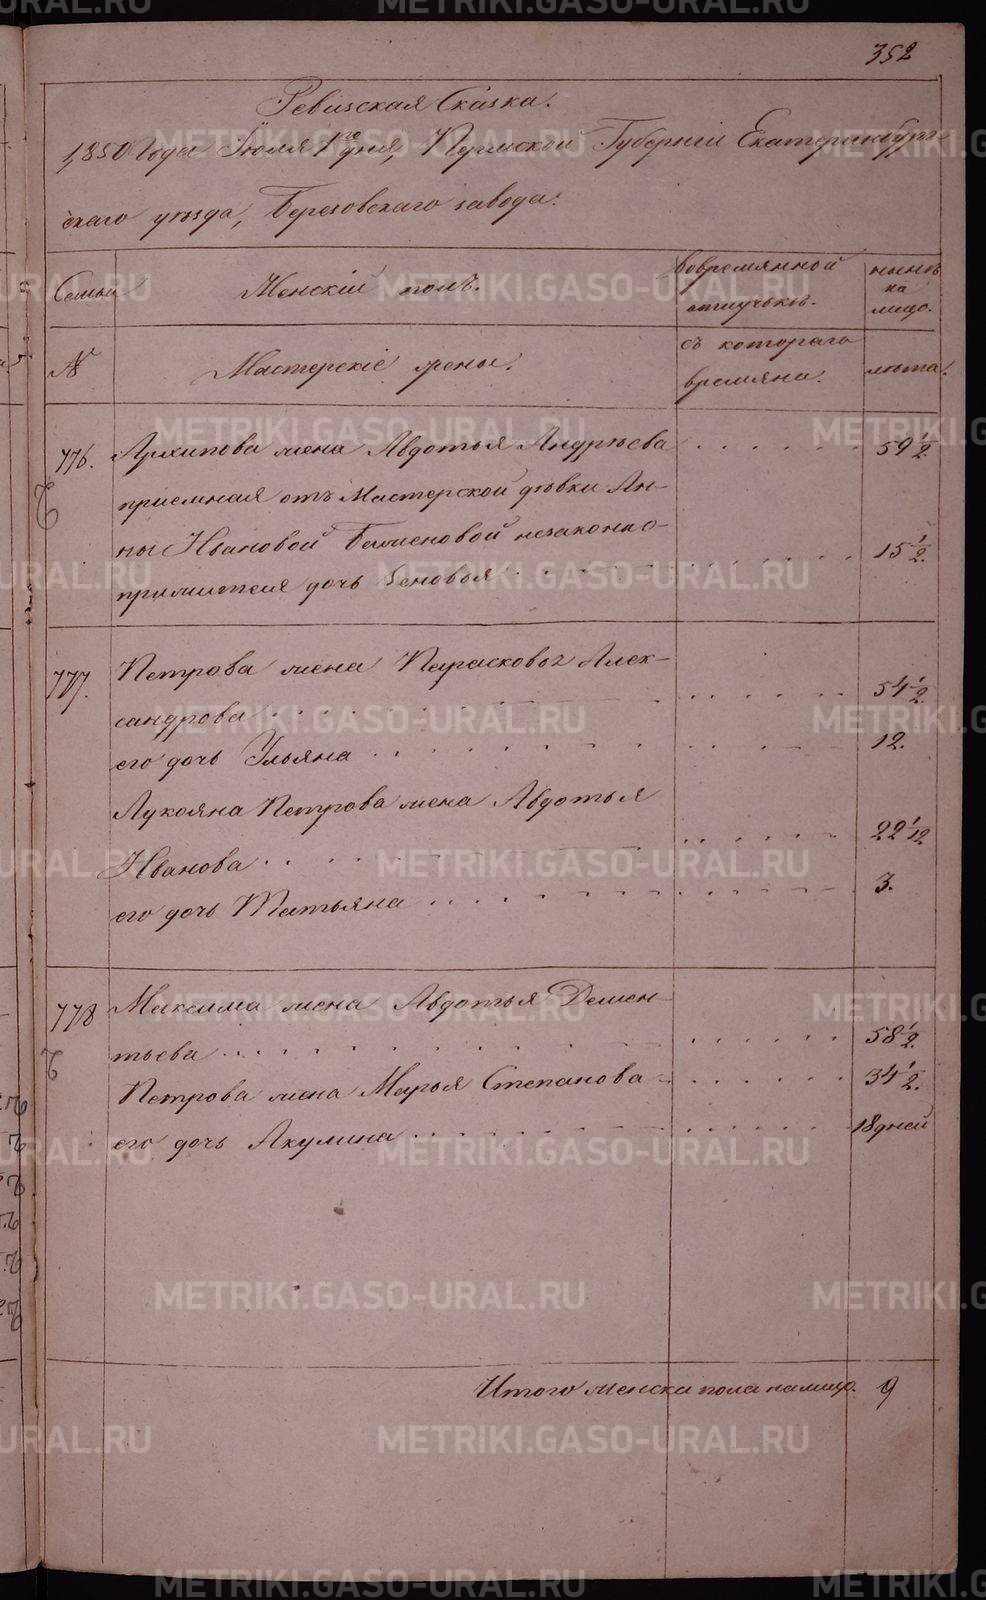 352
Ревизская Сказка.
1850 года Июля 1го дня, Пермской Губерніи Екатеринбург-
скаго уѣзда, Березовскаго завода.
Семьи
Женскій полъ.
вовремянной
отлучкѣ.
нынѣ
на
лицо.
№
Мастерскіе жены.
съ котораго
времяни.
лѣта.
776.
Архипова жена Авдотья Андрѣева
59 1/2
приемная отъ Мастерской дѣвки Ан-
ны Ивановой незаконно-
прижитая дочь Зеновья
15 1/2.
777.
Петрова жена Парасковья Алек-
сандрова
54 1/2
его дочь Ульяна
12.
Лукояна Петрова жена Авдотья
Иванова
22 1/12
его дочь Татьяна
3.
778
Максима жена Авдотья Демен-
тьева
58 1/2.
Петрова жена Марья Степанова
34 1/2.
его дочь Акулина
18 дней
Итого женска пола налицо.
9
METRIKI.GASO-URAL.RU